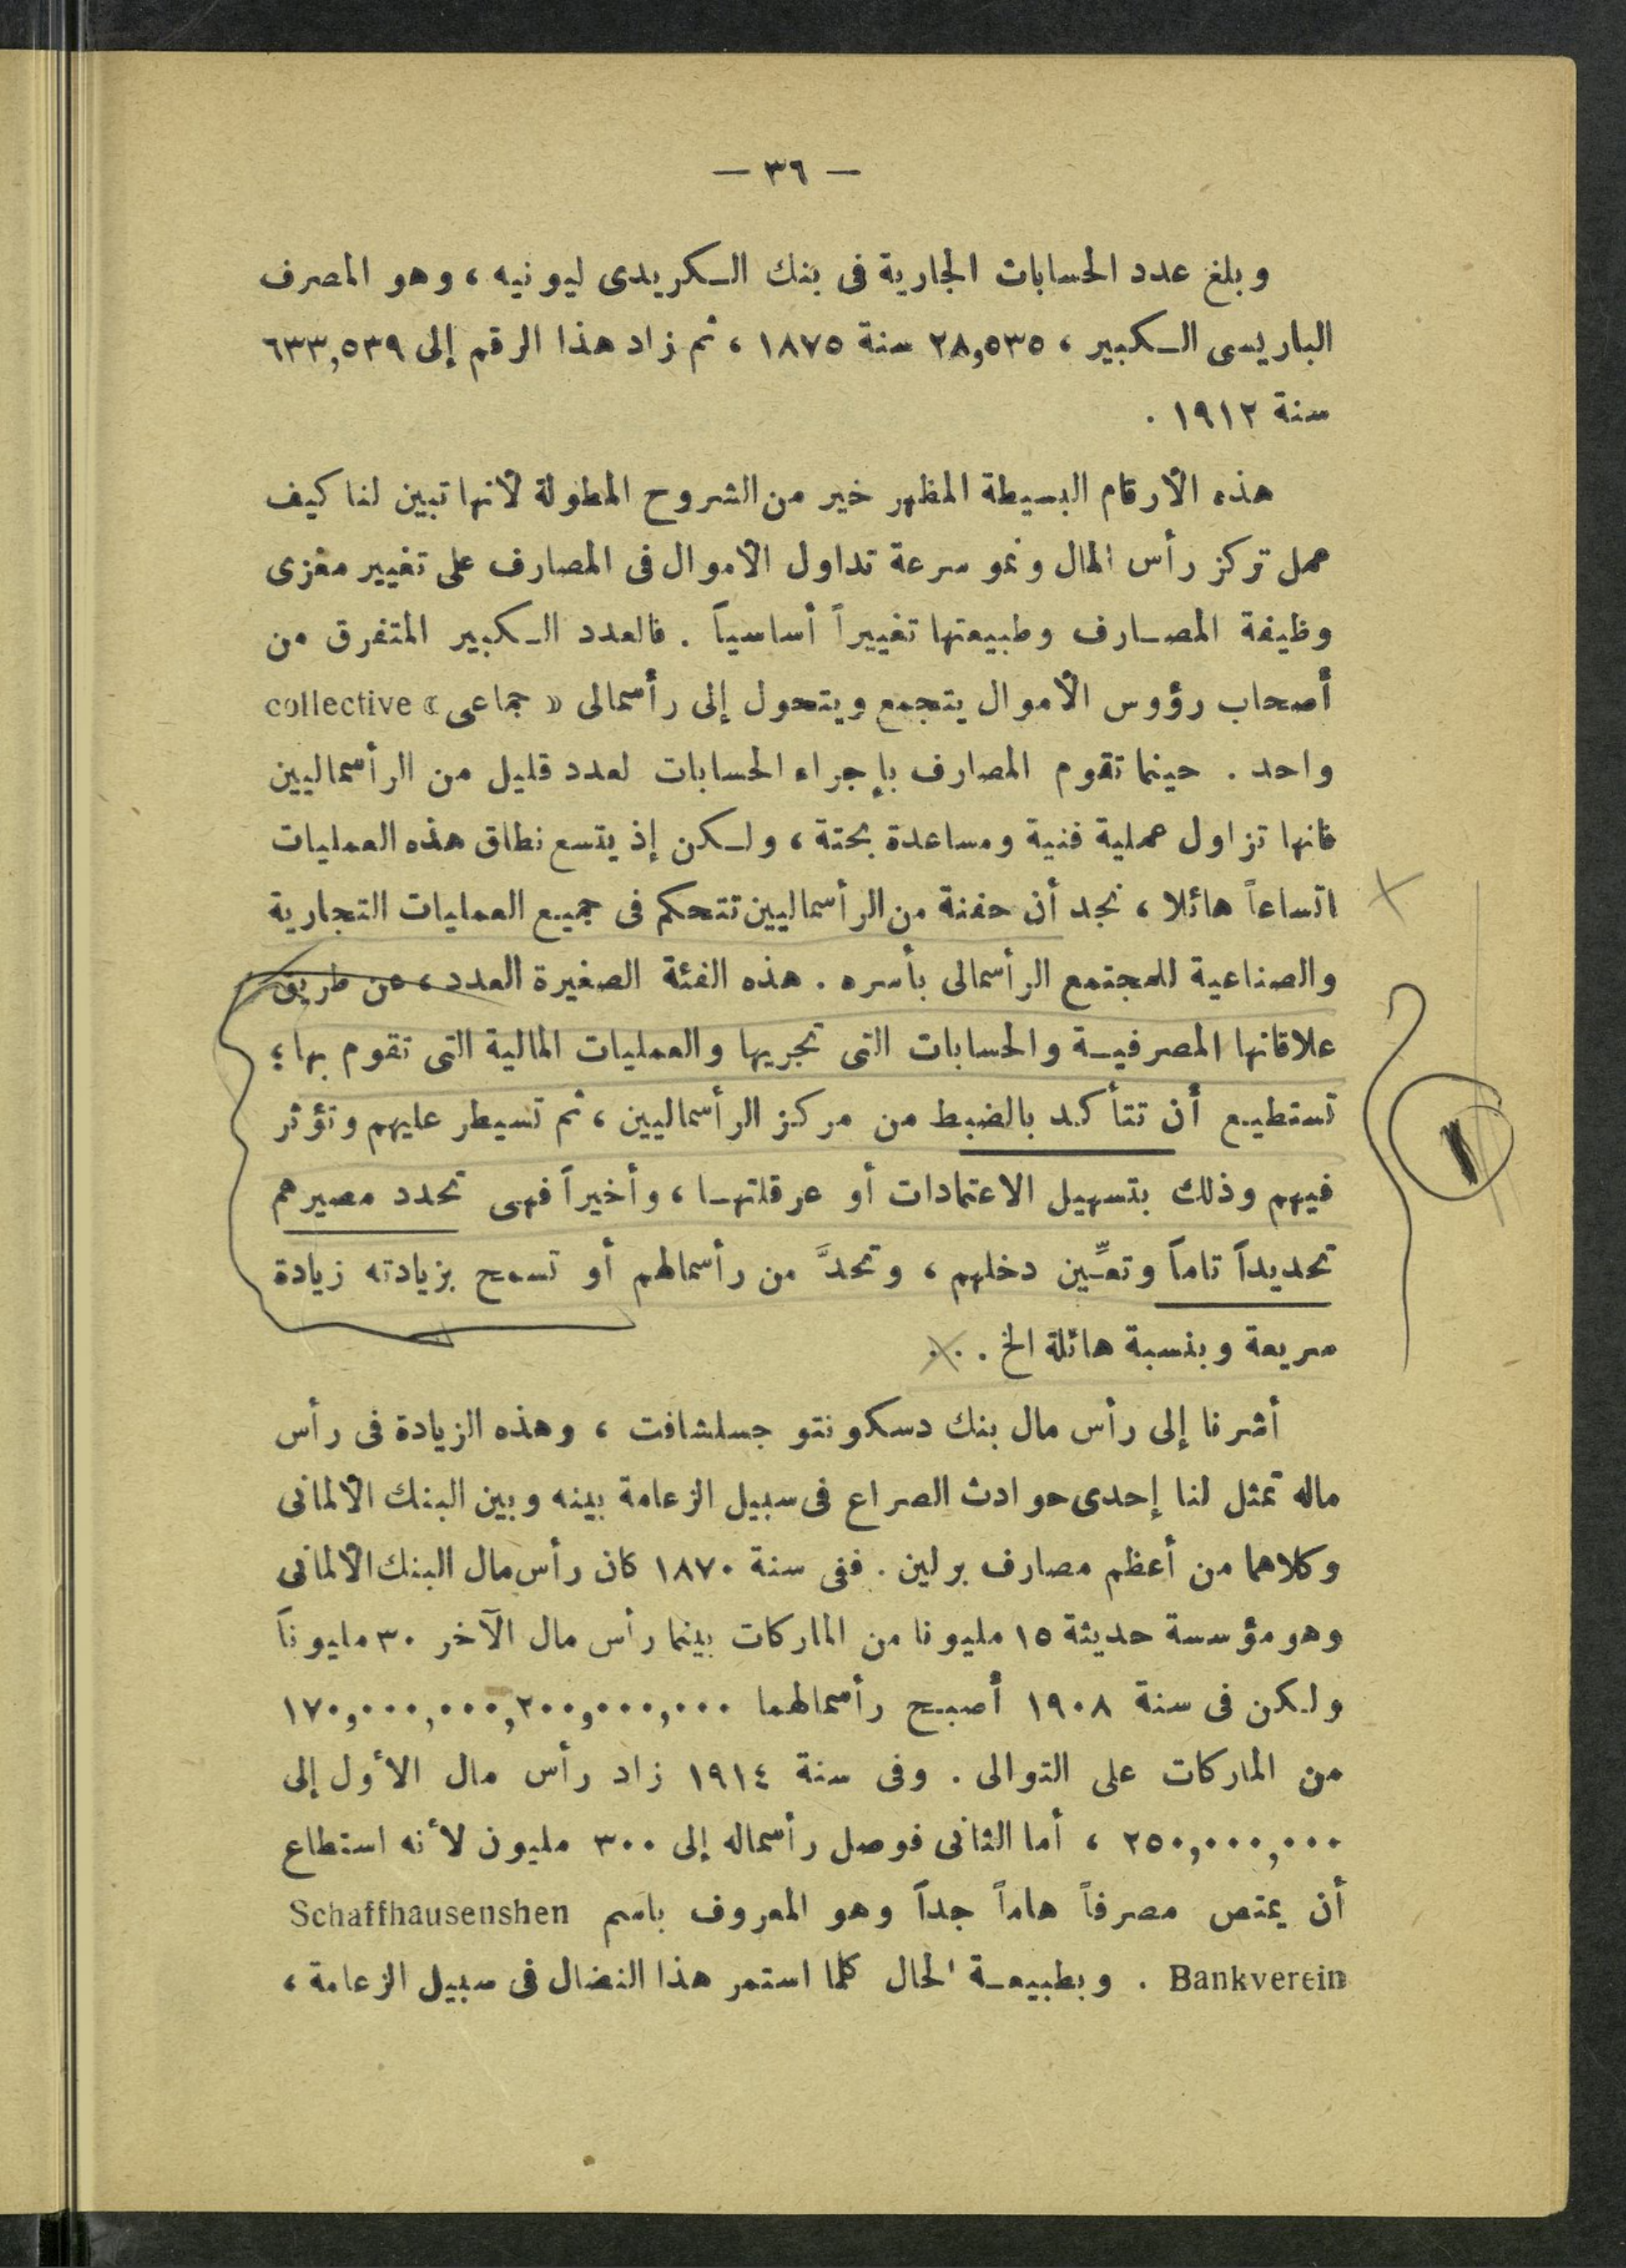 — ٣٦ —
وبلغ عدد الحسابات الجارية فى بنك الكريدى ليونيه ، وهو المصرف
الباريسى الكبير ، ٢٨,٥٣٥ سنة ١٨٧٥ ، ثم زاد هذا الرقم إلى ٦٣٣,٥٣٩
سنة ١٩١٢ .
هذه الأرقام البسيطة المظهر خير من الشروح المطولة لأنها تبين لنا كيف
عمل تركز رأس المال ونمو سرعة تداول الأموال فى المصارف على تغيير مغزى
وظيفة المصارف وطبيعتها تغييراً أساسياً . فالعدد الكبير المتفرق من
أصحاب رؤوس الأموال يتجمع ويتحول إلى رأسمالى « جماعى » collective
واحد . حينما تقوم المصارف بإجراء الحسابات لعدد قليل من الرأسماليين
فانها تزاول عملية فنية ومساعدة بحتة ، ولكن إذ يتسع نطاق هذه العمليات
اتساعاً هائلا ، نجد أن حفنة من الرأسماليين تتحكم فى جميع العمليات التجارية
والصناعية للمجتمع الرأسمالى بأسره . هذه الفئة الصغيرة العدد ، عن طريق
علاقاتها المصرفية والحسابات التى تجريها والعمليات المالية التى تقوم بها ؛
تستطيع أن تتأكد بالضبط من مركز الرأسماليين ، ثم تسيطر عليهم وتؤثر
فيهم وذلك بتسهيل الاعتمادات أو عرقلتها ، وأخيراً فهى تحدد مصيرهم
تحديداً تاماً وتعيِّن دخلهم ، وتحدَّ من رأسمالهم أو تسمح بزيادته زيادة
سريعة وبنسبة هائلة الخ . . .
أشرنا إلى رأس مال بنك دسكونتو جسلشافت ، وهذه الزيادة فى رأس
ماله تمثل لنا إحدى حوادث الصراع فى سبيل الزعامة بينه وبين البنك الألمانى
وكلاهما من أعظم مصارف برلين . ففى سنة ١٨٧٠ كان رأس مال البنك الألمانى
وهو مؤسسة حديثة ١٥ مليونا من الماركات بينما رأس مال الآخر ٣٠ مليوناً
ولكن فى سنة ١٩٠٨ أصبح رأسمالهما ٢٠٠,٠٠٠,٠٠٠ , ١٧٠,٠٠٠,٠٠٠
من الماركات على التوالى . وفى سنة ١٩١٤ زاد رأس مال الأول إلى
٢٥٠,٠٠٠,٠٠٠ ، أما الثانى فوصل رأسماله إلى ٣٠٠ مليون لأنه استطاع
أن يمتص مصرفاً هاماً جداً وهو المعروف باسم Schaffhausenshen
Bankverein . وبطبيعة الحال كلما استمر هذا النضال فى سبيل الزعامة ،
١